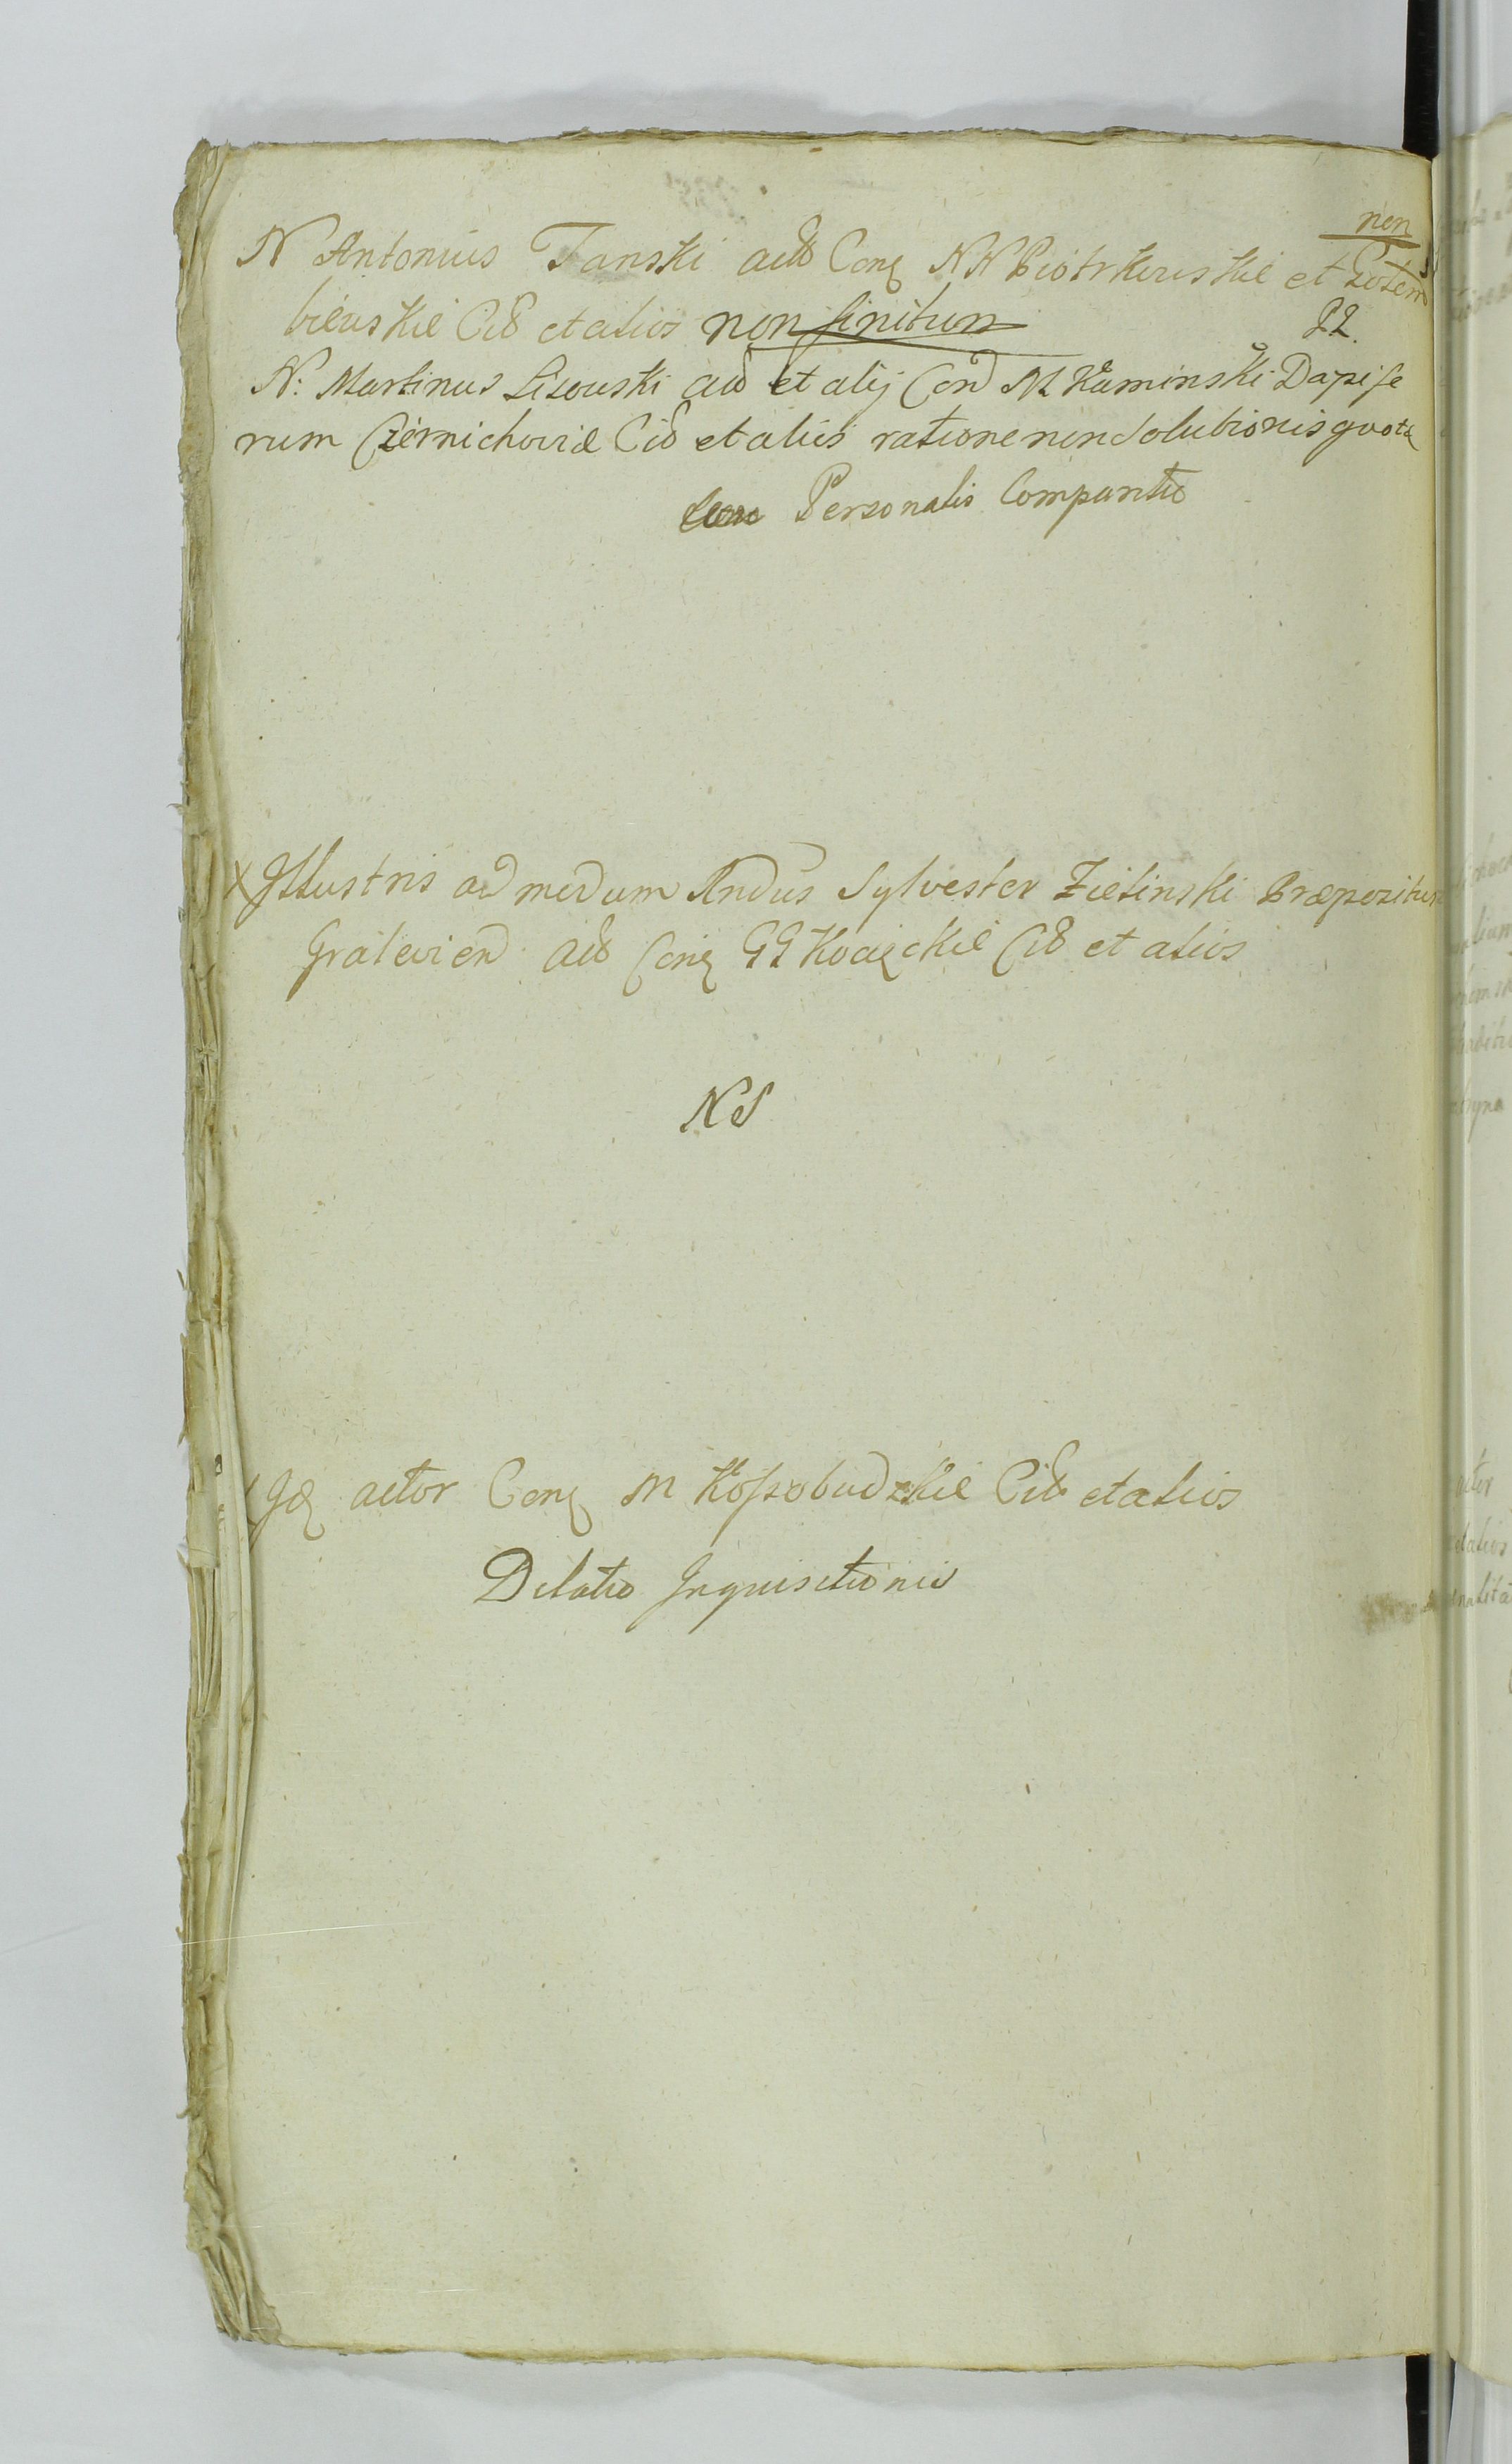 non
N Antonius Tanski actŏ Conʒ NN Piotrkowskie et Gołem
biewskie Citŏ et alios non finitum
22.
N: Martinus Lisowski actŏ et alij Con M Kaminski Dapife
rum Czernichoviæ Citŏ et alios ratione non Solutionis quotæ
Personalis Comparitio
X Illustris admodum Rndus Sylvester Zielinski Præpozitus
Gralevien actŏ Conʒ GG Koczękie Citŏ et alios
NS
Idʒ actor Conʒ M Kossobudzkie Citŏ et alios
Dilatio Inquisitionis